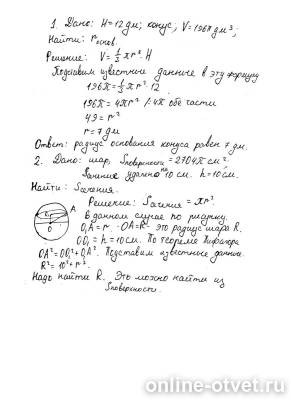 1. Дано: H=12дм; конус; V=196π дм³;
Найти: rоснов.
Решение: V=1/3πr²·H
Подставим известные данные в эту формулу
196π=1/3πr²·12
196π=4πr² /:4π обе части
49=r²
r=7дм
Ответ: радиус основания конуса равен 7 дм.
2. Дано: шар, Sповерхности=2704π см²
Сечение удалено на 10см. h=10см.
Найти: Sсечения.
Решение: Sсечения=πr².
A В данном случае по рисунку.
O₁ O₁A=r. OA=R- это радиус шара R.
O OO₁=h=10см. По теореме Пифагора
OA²=OO₁²+O₁A². Подставим известные данные.
R²=10²+r².
Надо найти R. Это можно найти из
Sповерхности.
online-otvet.ru